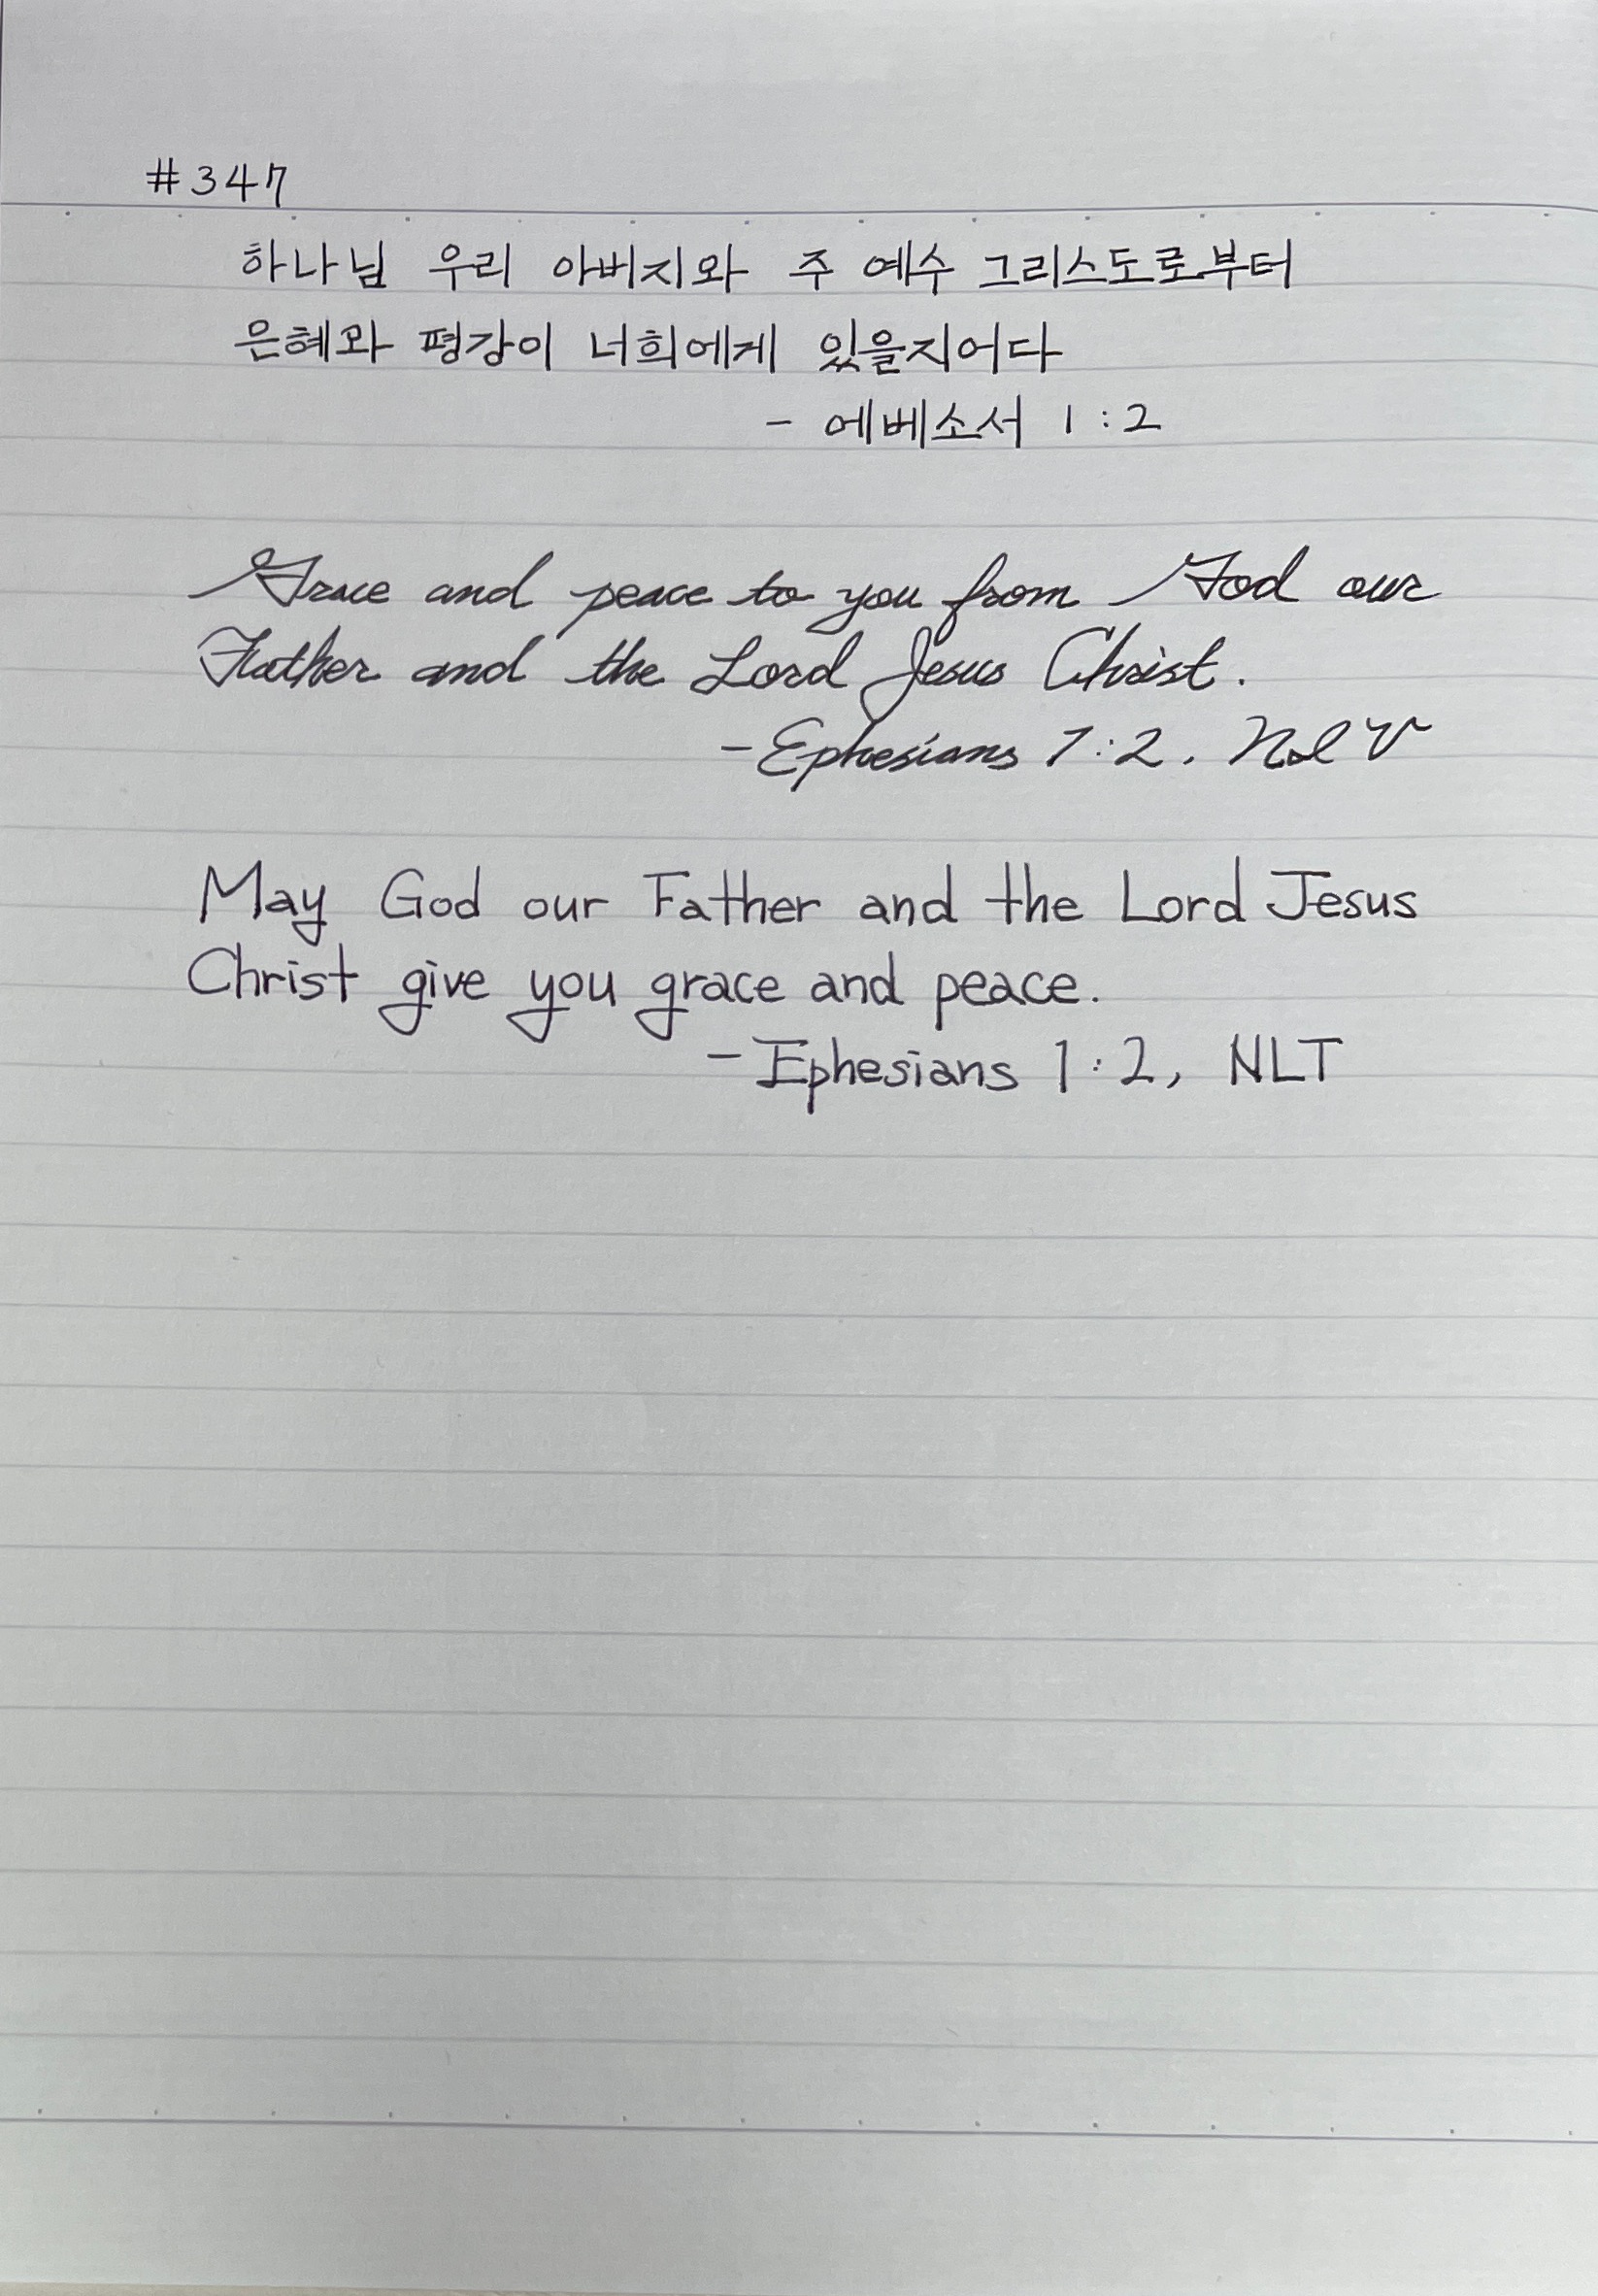 #347
하나님 우리 아버지와 주 예수 그리스도로부터
은혜와 평강이 너희에게 있을지어다
- 에베소서 1:2
Grace and peace to you from God our
Father and the Lord Jesus Christ.
- Ephesians 1:2. NIV
May God our Father and the Lord Jesus
Christ give you grace and peace.
- Ephesians 1:2, NLT